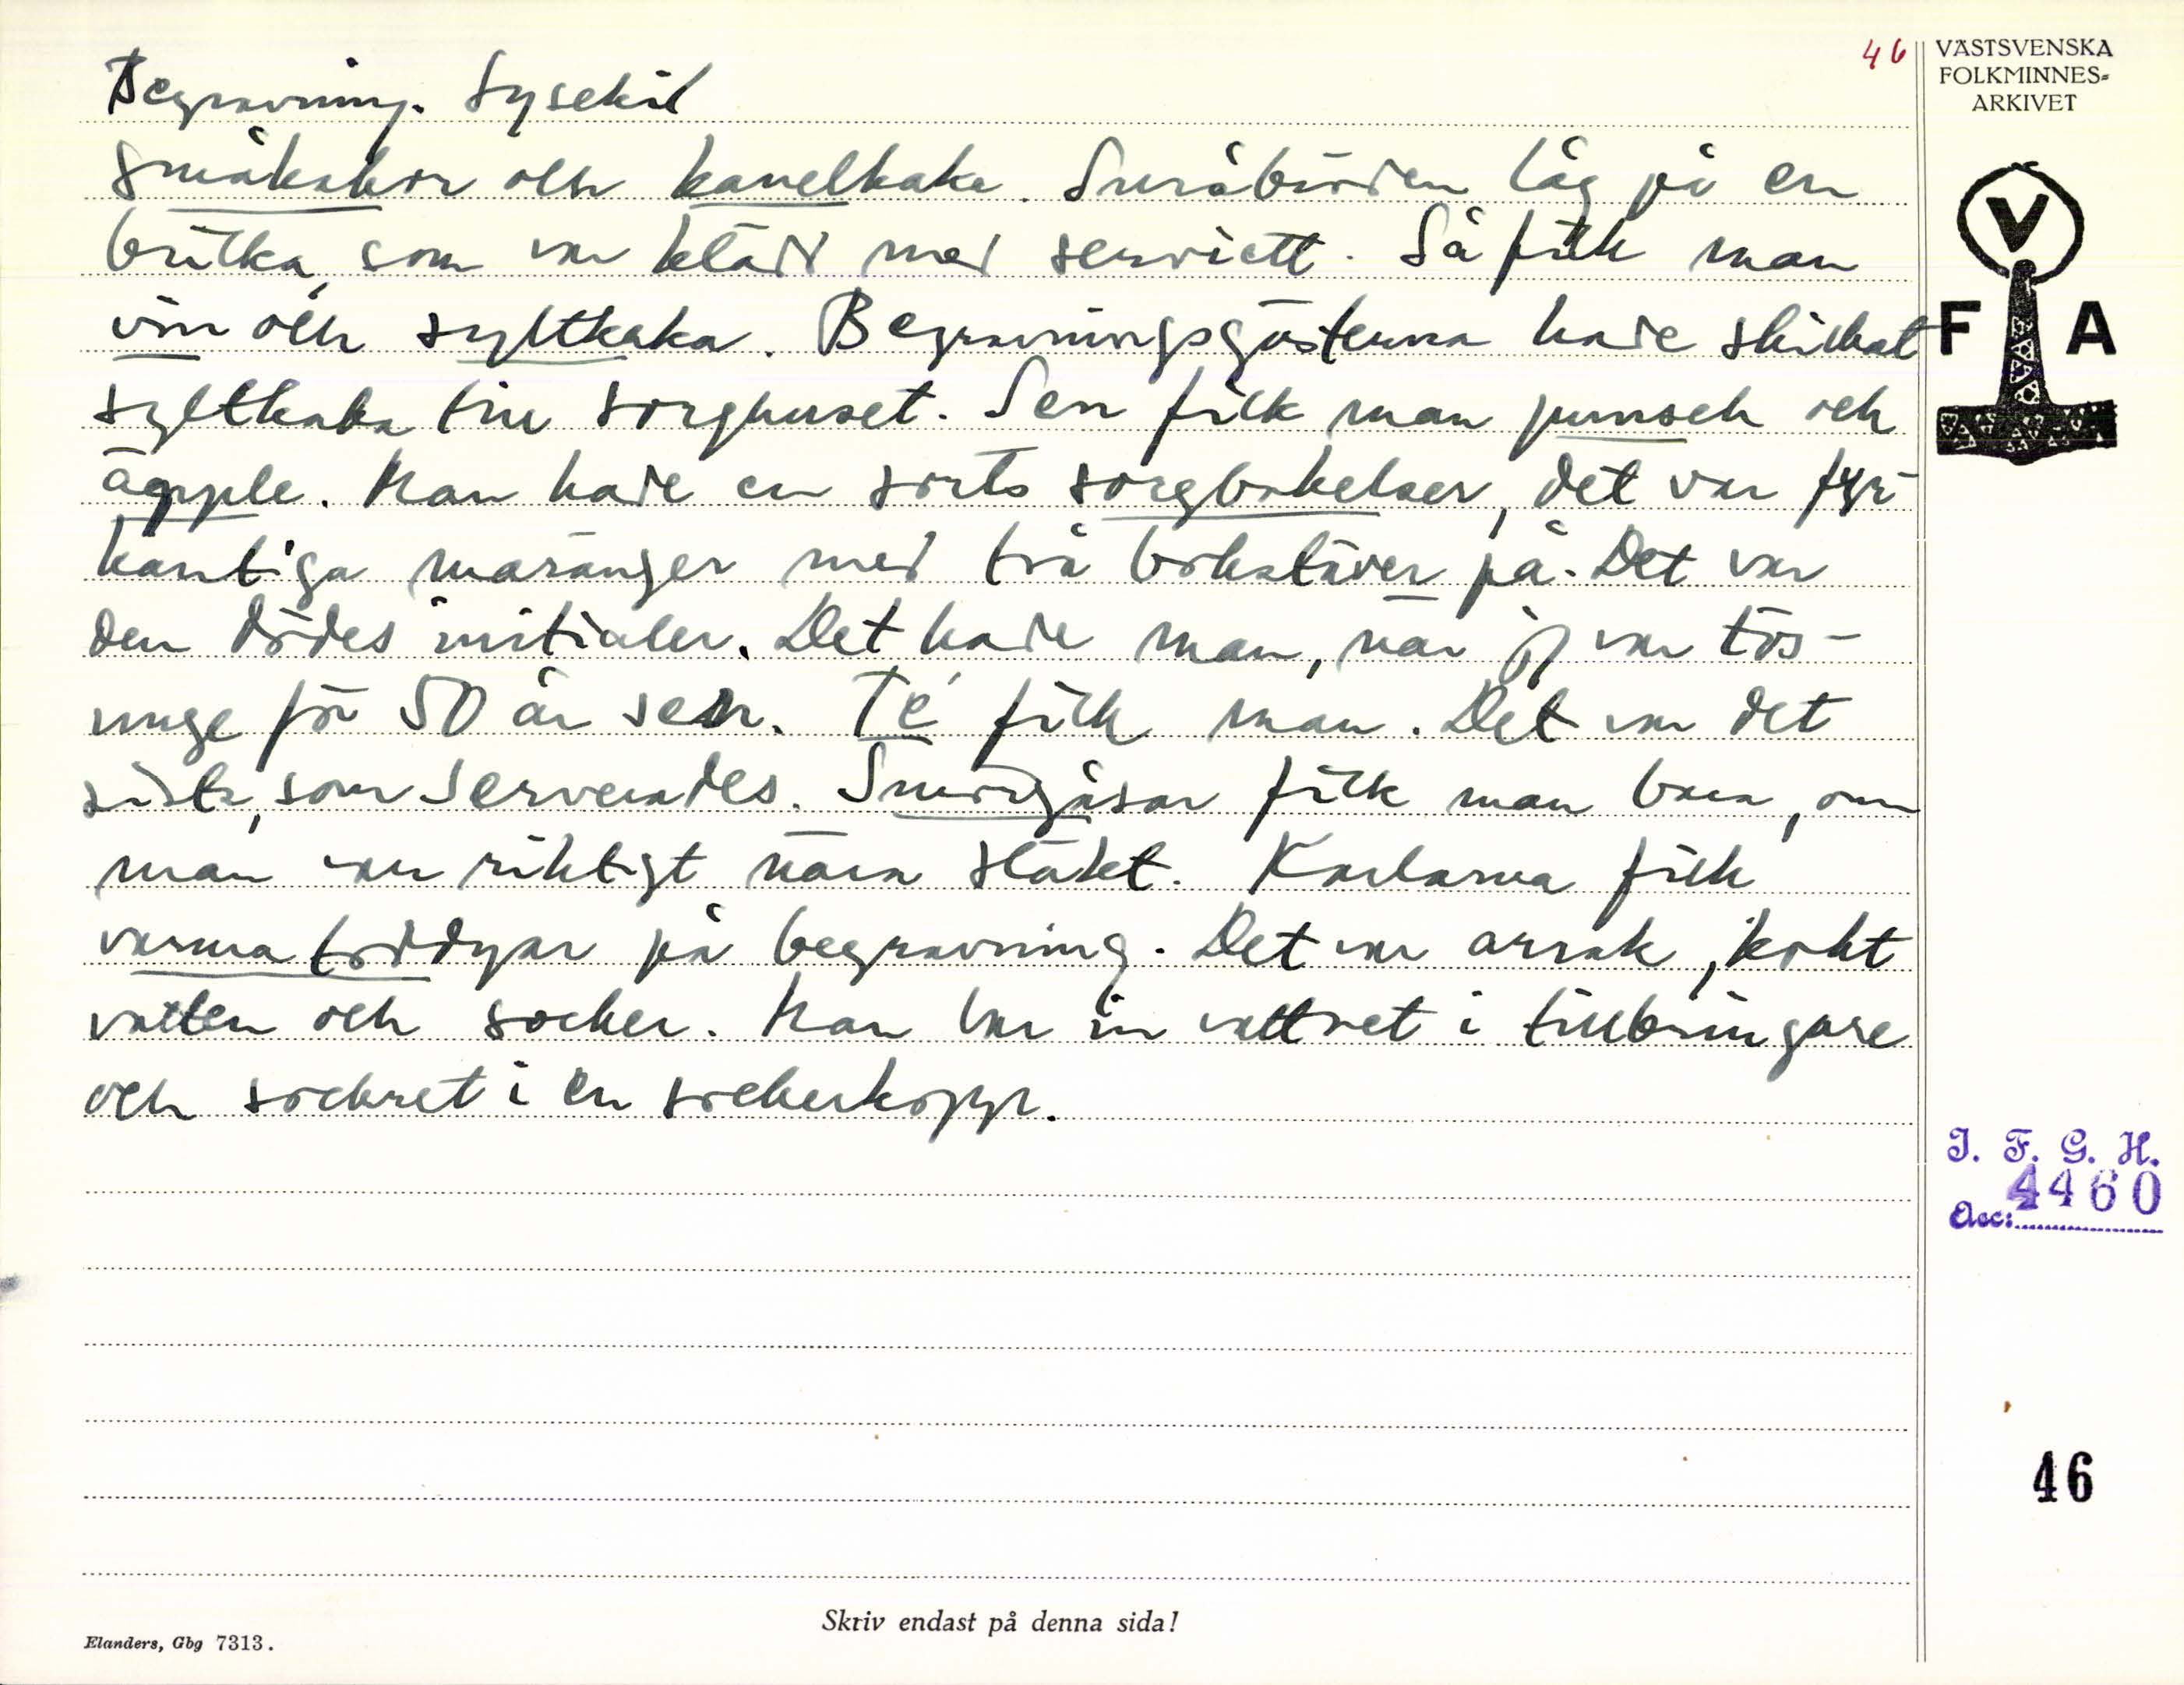 46
Begravning. Lysekil
Småkakor och kanelkaka. Småbröden låg på en
bricka, som var klädd med serviett. Så fick man
vin och syltkaka. Begravningsgästerna hade skickat
syltkaka till sorghuset. Sen fick man punsch och
äpple. Man hade en sorts sorgbakelser, det var fyr-
kantiga maränger med två bokstäver på. Det var
den dödes initialer. Det hade man, när jag var tös-
unge för 50 år sen. Té fick man. Det var det
sista, som serverades. Smörgåsar fick man bara, om
man var riktigt nära släkt. Karlarna fick
varma toddyar på begravning. Det var arrak, kokt
vatten och socker. Man bar in vattnet i tillbringare
och sockret i en sockerkopp.
VÄSTSVENSKA
FOLKMINNES=
ARKIVET
V
F A
I. F. G. H.
Acc: 4460
46
Skriv endast på denna sida!
Elanders, Gbg 7313.